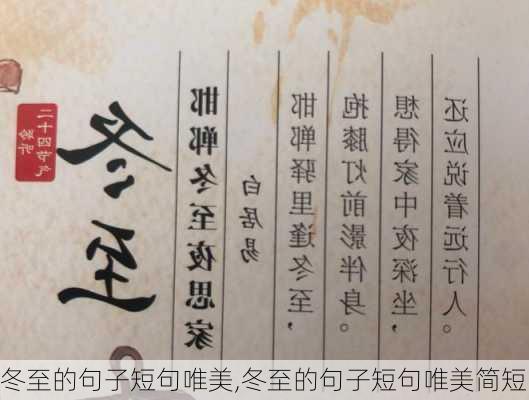 冬至
二十四节气
邯郸冬至夜思家
白居易
邯郸驿里逢冬至，
抱膝灯前影伴身。
想得家中夜深坐，
还应说着远行人。
冬至的句子短句唯美,冬至的句子短句唯美简短